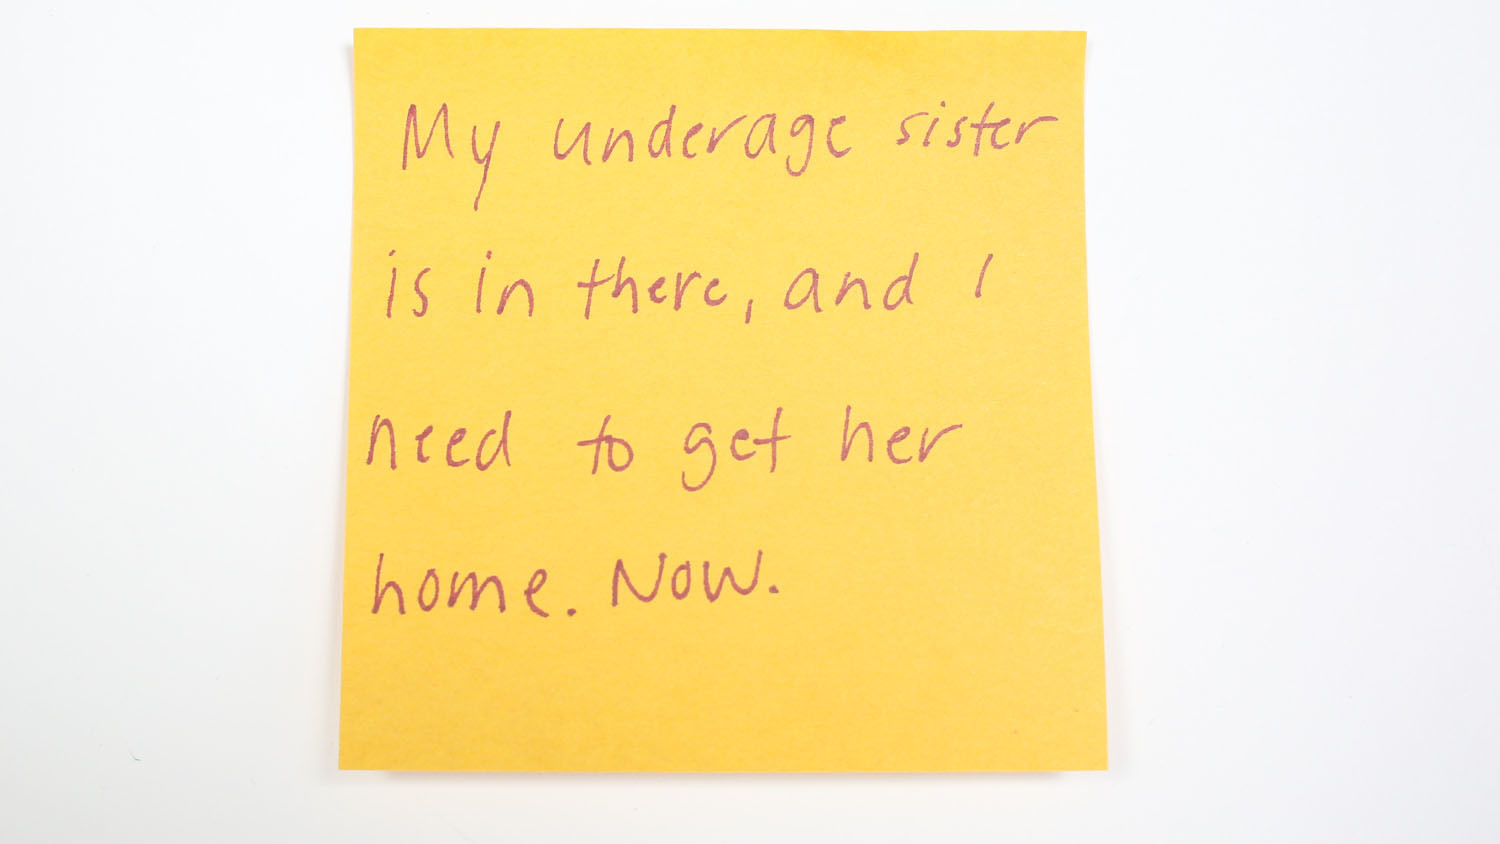 My underage sister
is in there, and I
need to get her
home. Now.